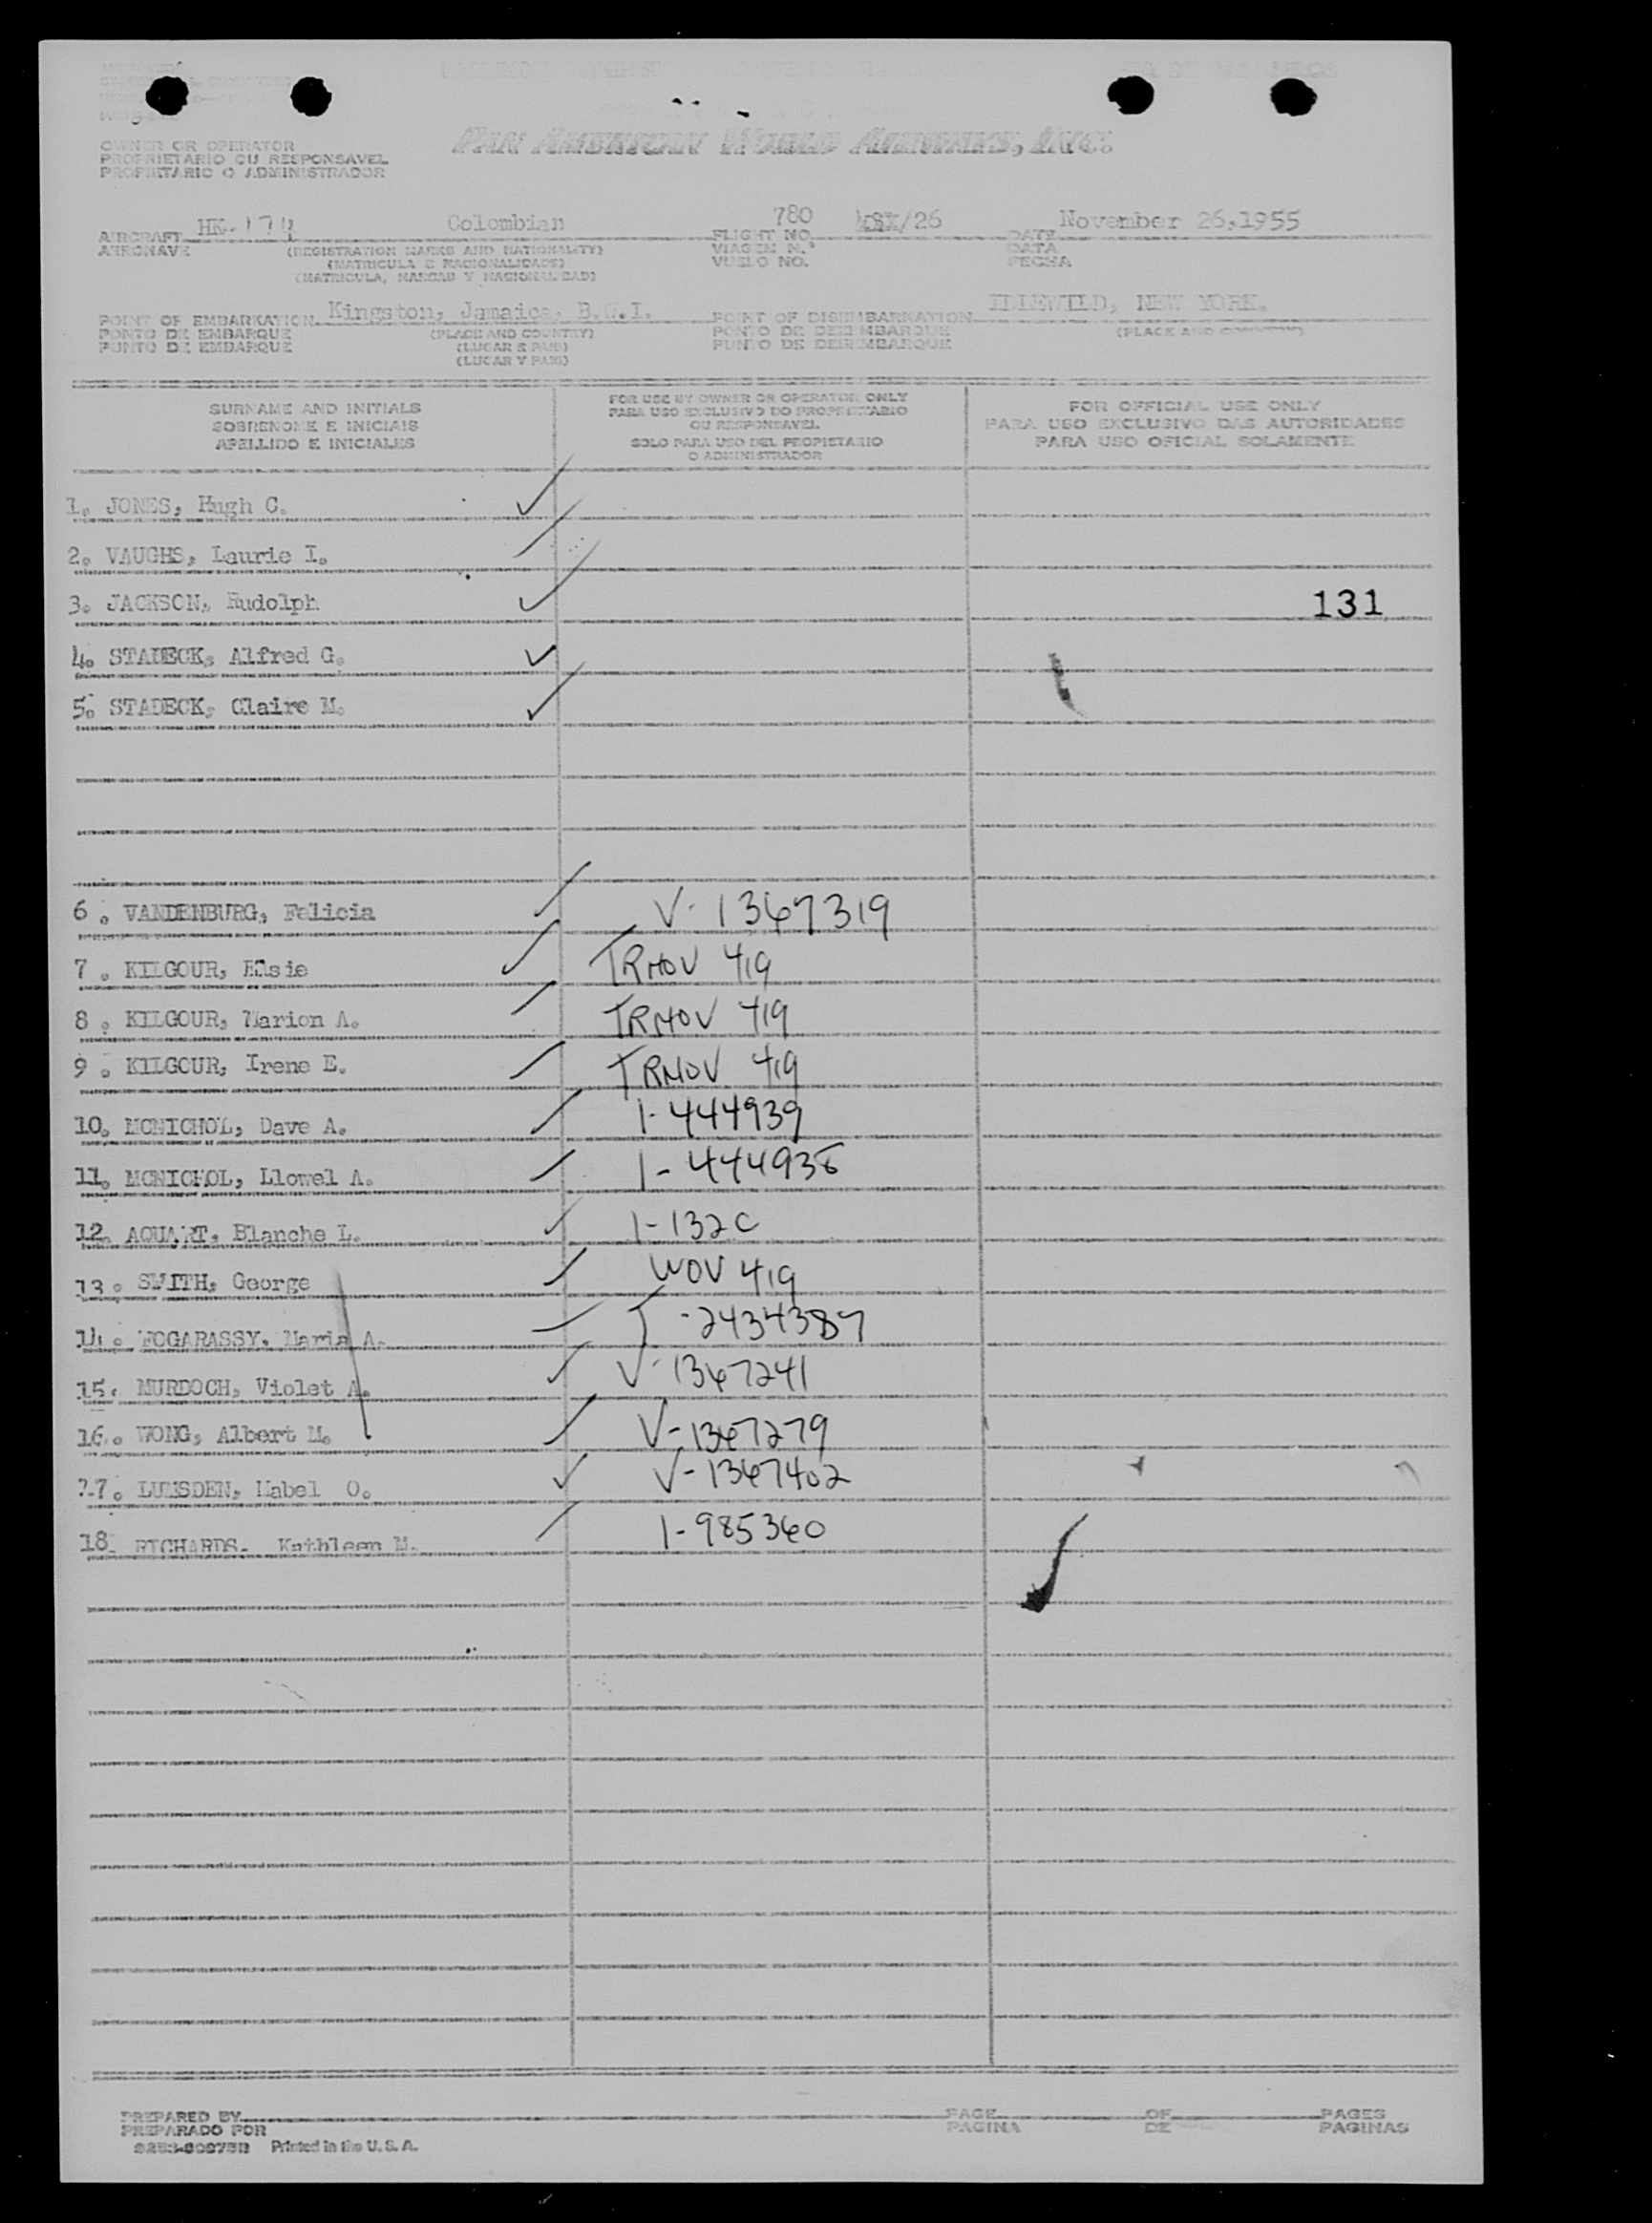 PAN AMERICAN WORLD AIRWAYS, INC.
OWNER OR OPERATOR
PROPRIETARIO OU RESPONSAVEL
PROPIETARIO O ADMINISTRADOR
AIRCRAFT HK-174 Colombian FLIGHT NO. 780 /26 DATE November 26,1955
AERONAVE (REGISTRATION MARKS AND NATIONALITY) VIAGEM N.º DATA
(MATRICULA E NACIONALIDADE) VUELO NO. FECHA
(MATRICULA, MARCAS Y NACIONALIDAD)
POINT OF EMBARKATION Kingston, Jamaica, B.W.I. POINT OF DISEMBARKATION IDLEWILD, NEW YORK.
PONTO DE EMBARQUE (PLACE AND COUNTRY) PONTO DE DESEMBARQUE (PLACE AND COUNTRY)
PUNTO DE EMBARQUE (LUGAR E PAIS) PUNTO DE DESEMBARQUE
(LUGAR Y PAIS)
SURNAME AND INITIALS
SOBRENOME E INICIAIS
APELLIDO E INICIALES
FOR USE BY OWNER OR OPERATOR ONLY
PARA USO EXCLUSIVO DO PROPRIETARIO
OU RESPONSAVEL
SOLO PARA USO DEL PROPIETARIO
O ADMINISTRADOR
FOR OFFICIAL USE ONLY
PARA USO EXCLUSIVO DAS AUTORIDADES
PARA USO OFICIAL SOLAMENTE
1. JONES, Hugh C.
2. VAUGHS, Laurie I.
3. JACKSON, Rudolph 131
4. STADECK, Alfred G.
5. STADECK, Claire M.
6. VANDENBURG, Felicia V-1367319
7. KILGOUR, Elsie TRMOV 419
8. KILGOUR, Marion A. TRMOV 419
9. KILGOUR, Irene E. TRMOV 419
10. MCNICHOL, Dave A. 1-444939
11. MCNICHOL, Llowel A. 1-444938
12. AQUART, Blanche L. 1-132C
13. SMITH, George WOV 419
14. FOGARASSY, Maria A. T-2434387
15. MURDOCH, Violet A. V-1367241
16. WONG, Albert M. V-1367279
17. LUMSDEN, Mabel O. V-1367402
18. RICHARDS. Kathleen M. 1-985360
PREPARED BY PAGE OF PAGES
PREPARADO POR PAGINA DE PAGINAS
Printed in the U. S. A.